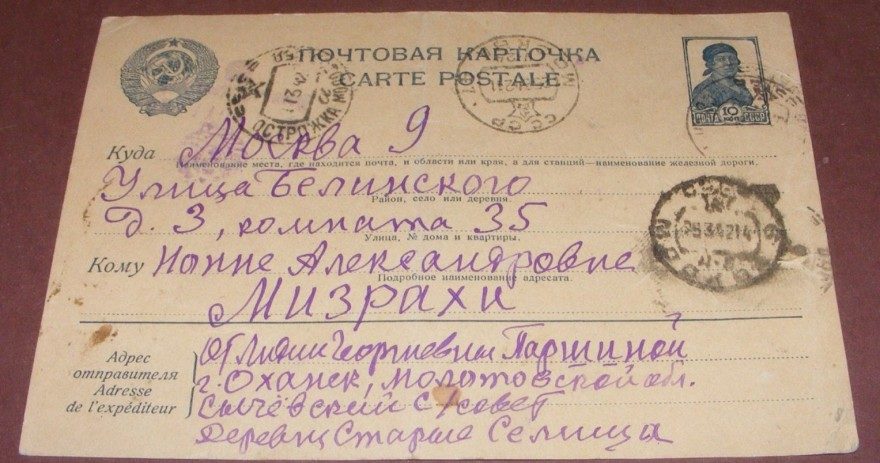 ПОЧТОВАЯ КАРТОЧКА
CARTE POSTALE
ПОЧТА 10 СССР
ОСТРОЖКА
СССР
Куда Москва 9
Наименование места, где находится почта, и области или края, а для станций—наименование железной дороги.
Улица Белинского
Район, село или деревня.
д. 3, комната 35
Улица, № дома и квартиры.
Кому Нонне Александровне
Подробное наименование адресата.
Мизрахи
Адрес отправителя
Adresse de l'expéditeur
от Лидии Георгиевны Паршиной
г. Оханск, Молотовской обл.
Сычевский с/совет
деревня Старые Селища